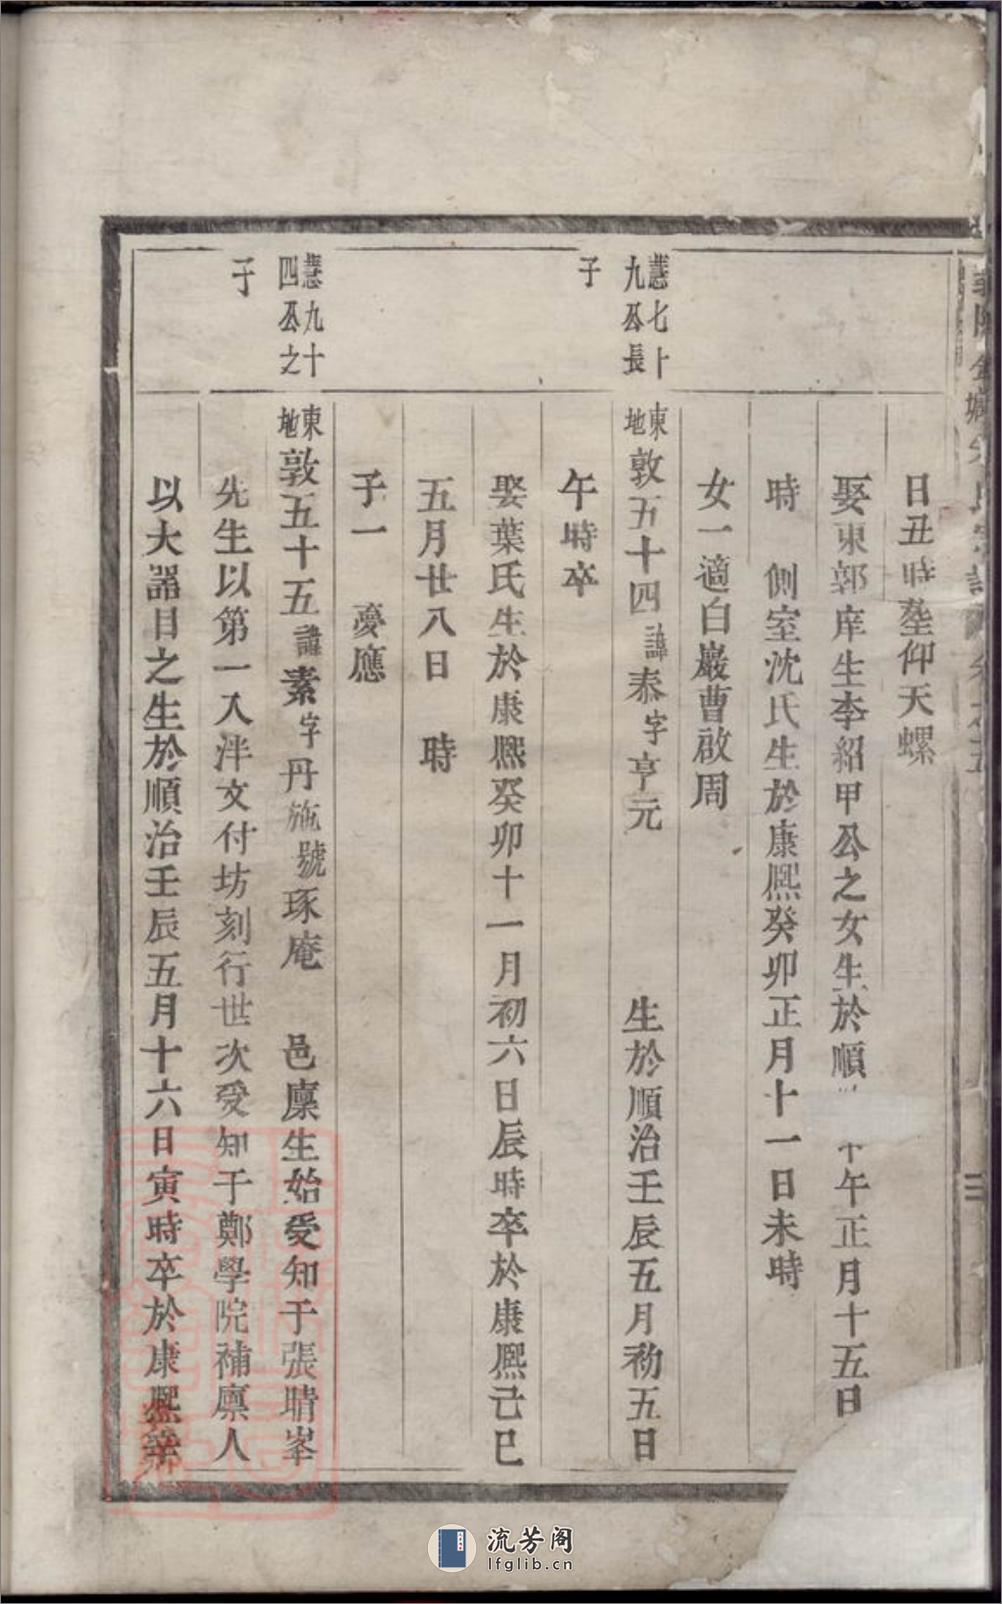 日丑時塟仰天螺
娶東郭庠生李紹甲公之女生於順 午正月十五日
時 側室沈氏生於康熙癸卯正月十一日未時
女一適白巖曹啟周
慧七十九公長子
東地敦五十四諱泰字亨元 生於順治壬辰五月初五日
午時卒
娶葉氏生於康熙癸卯十一月初六日辰時卒於康熙己巳
五月廿八日 時
子一 夢應
慧九十四公之子
東地敦五十五諱素字丹 號琢庵 邑廩生始受知于張晴峯
先生以第一入泮文付坊刻行世次受知于鄭學院補廩人
以大器目之生於順治壬辰五月十六日寅時卒於康熙
流芳阁
lfglib.cn